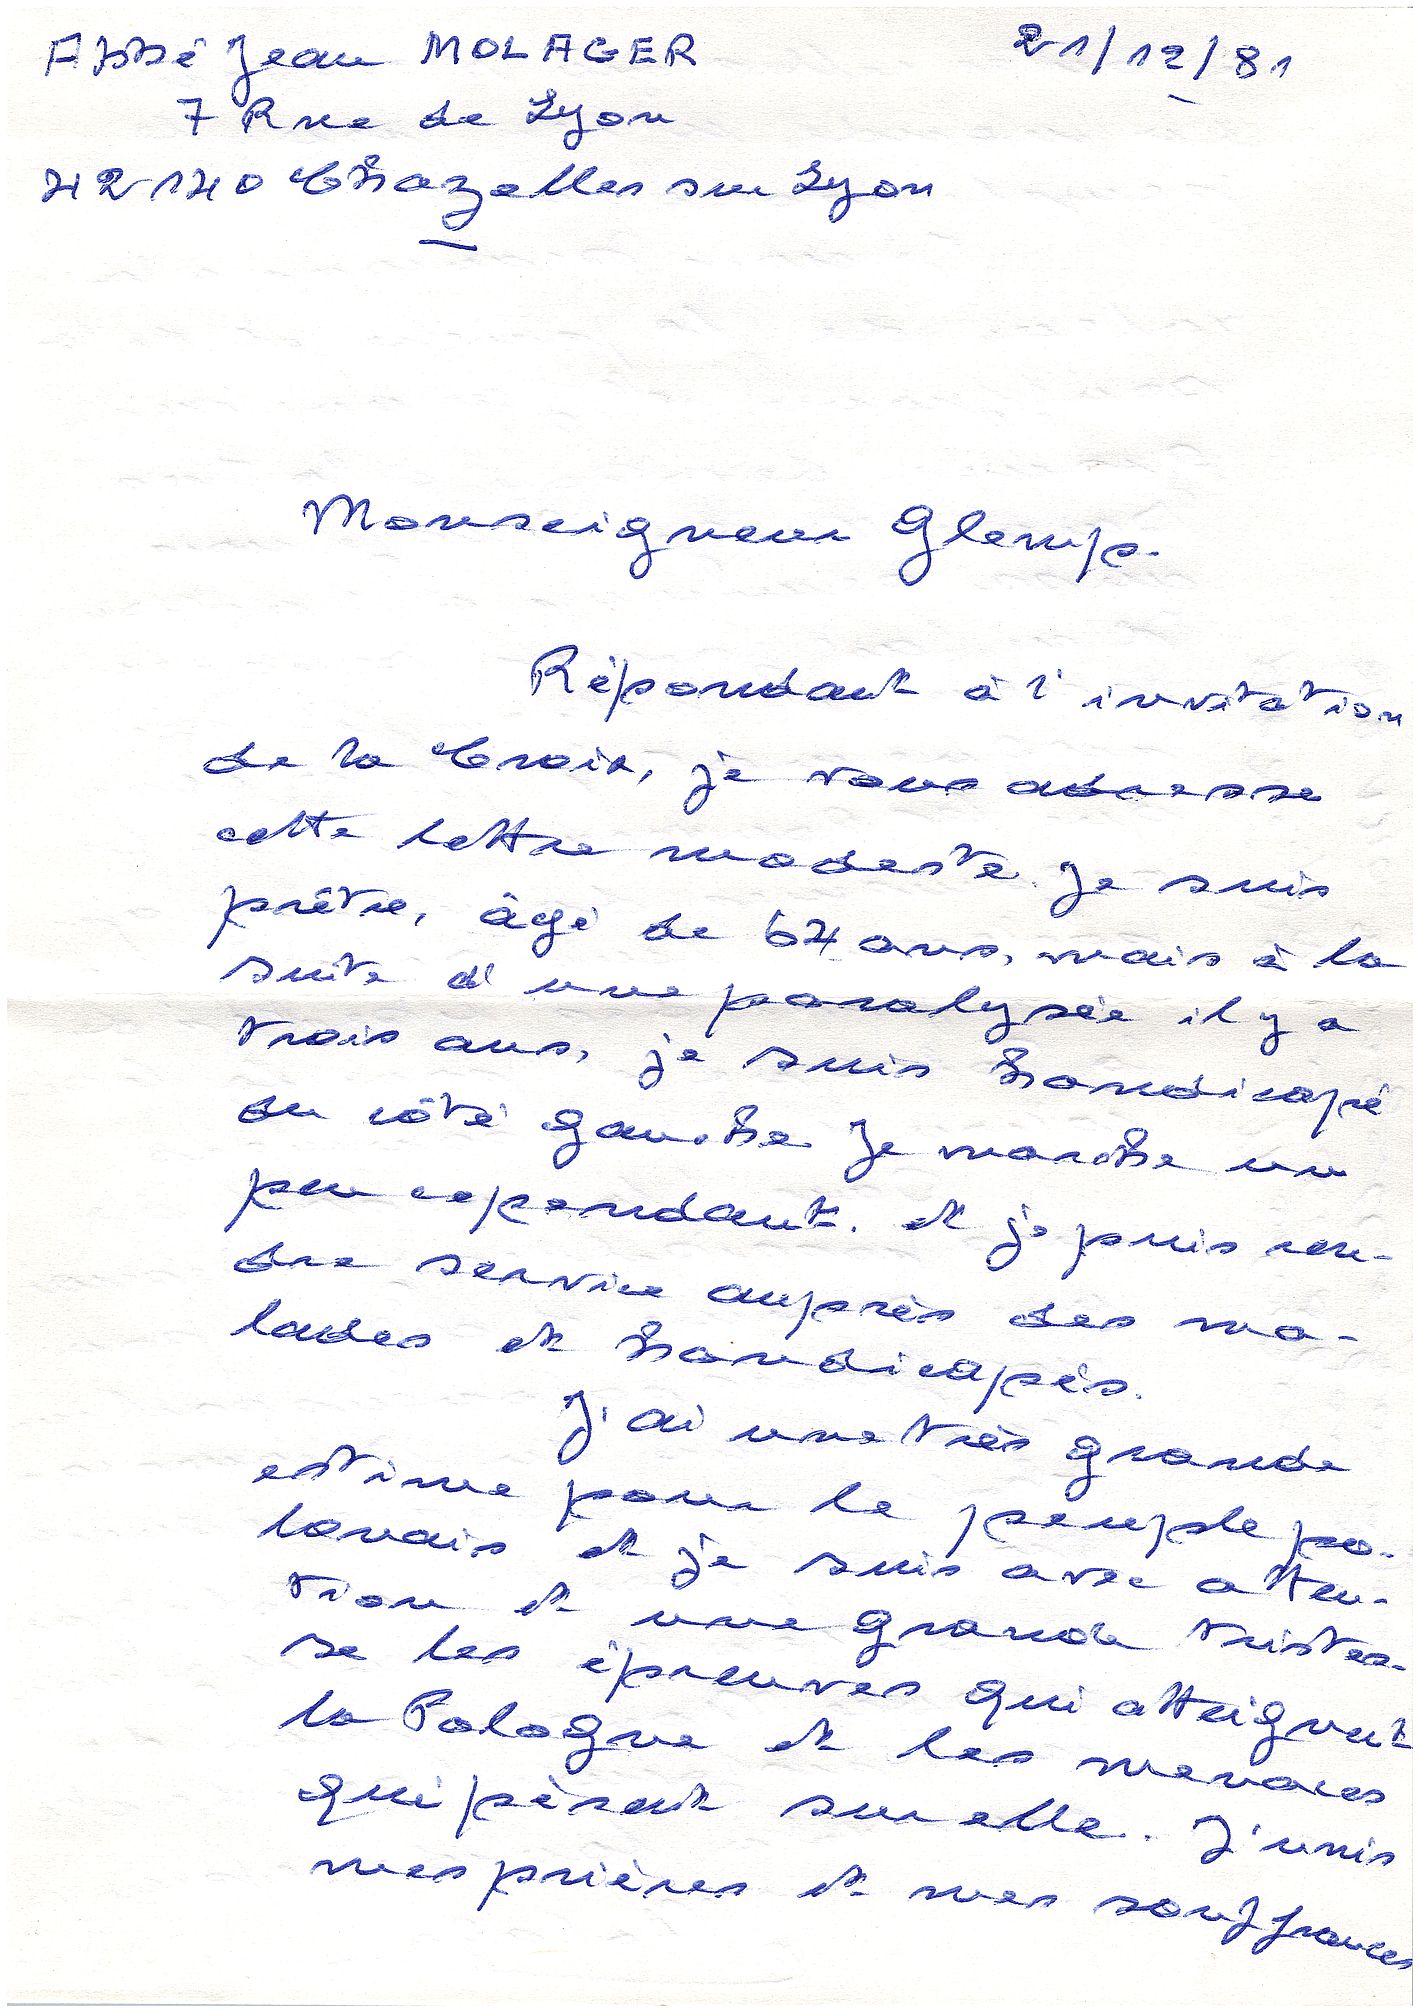 Abbé Jean MOLAGER 21/12/81
7 Rue de Lyon
42140 Chazelles sur Lyon
Monseigneur Glemp.
Répondant à l'invitation
de la Croix, je vous adresse
cette lettre modeste. Je suis
prêtre, âgé de 64 ans, mais à la
suite d'une paralysée il y a
trois ans, je suis handicapé
du côté gauche. Je marche un
peu cependant. et je puis ren-
dre service auprès des ma-
lades et handicapés.
J'ai une très grande
estime pour le peuple po-
lonais et je suis avec atten-
tion et une grande tristes-
se les épreuves qui atteignent
la Pologne et les menaces
qui pèsent sur elle. J'unis
mes prières et mes souffrances